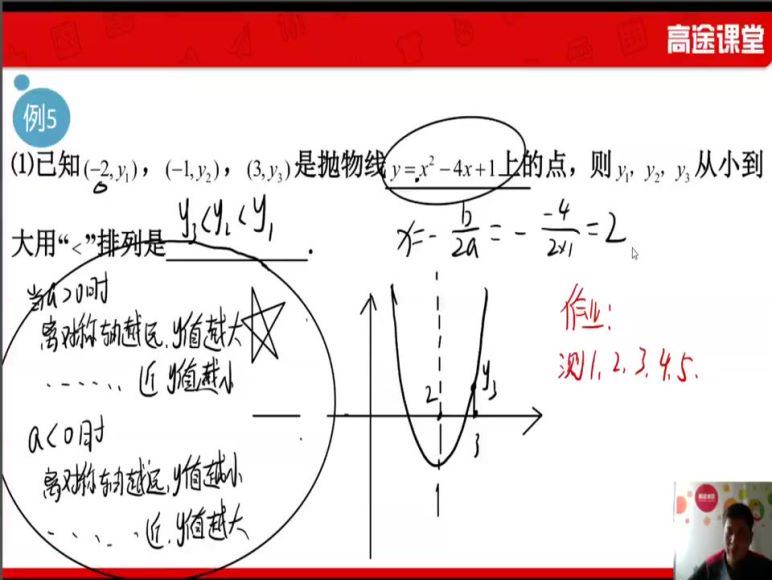 高途课堂
例5
(1)已知(-2,y₁)，(-1,y₂)，(3,y₃)是抛物线y=x²-4x+1上的点，则y₁，y₂，y₃从小到
大用“<”排列是 y₃<y₂<y₁ .
x=-b/2a=--4/2×1=2
当a>0时
离对称轴越远,y值越大
......近 y值越小
a<0时
离对称轴越远,y值越小
......近,y值越大
作业:
测1.2.3.4.5.
2
y₃
3
高途课堂